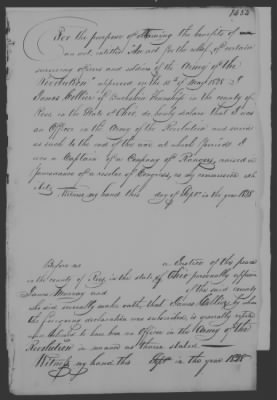 For the purpose of obtaining the benefits of
an act, entitled "An act for the relief of certain
surviving officers and soldiers of the Army of the
Revolution" approved on the 15th of May 1828 I
James Collier of Township in the county of
Ross in the State of Ohio, do hereby declare that I was
an Officer in the Army of the Revolution and served
as such to the end of the war at which period I
was a Captain of a Company of Rangers raised in
pursuance of a resolve of Congress, as my commission
Witness my hand this day of Septr. in the year 1828
Before me a Justice of the peace
in the county of Ross, in the State of Ohio personally appeared
James Murray and of the said county
who did severally make oath, that James Collier by whom
the foregoing declaration was subscribed, is generally reputed
and believed to have been an Officer in the Army of the
Revolution in manner as therein stated
Witness my hand this Septr in the year 1828